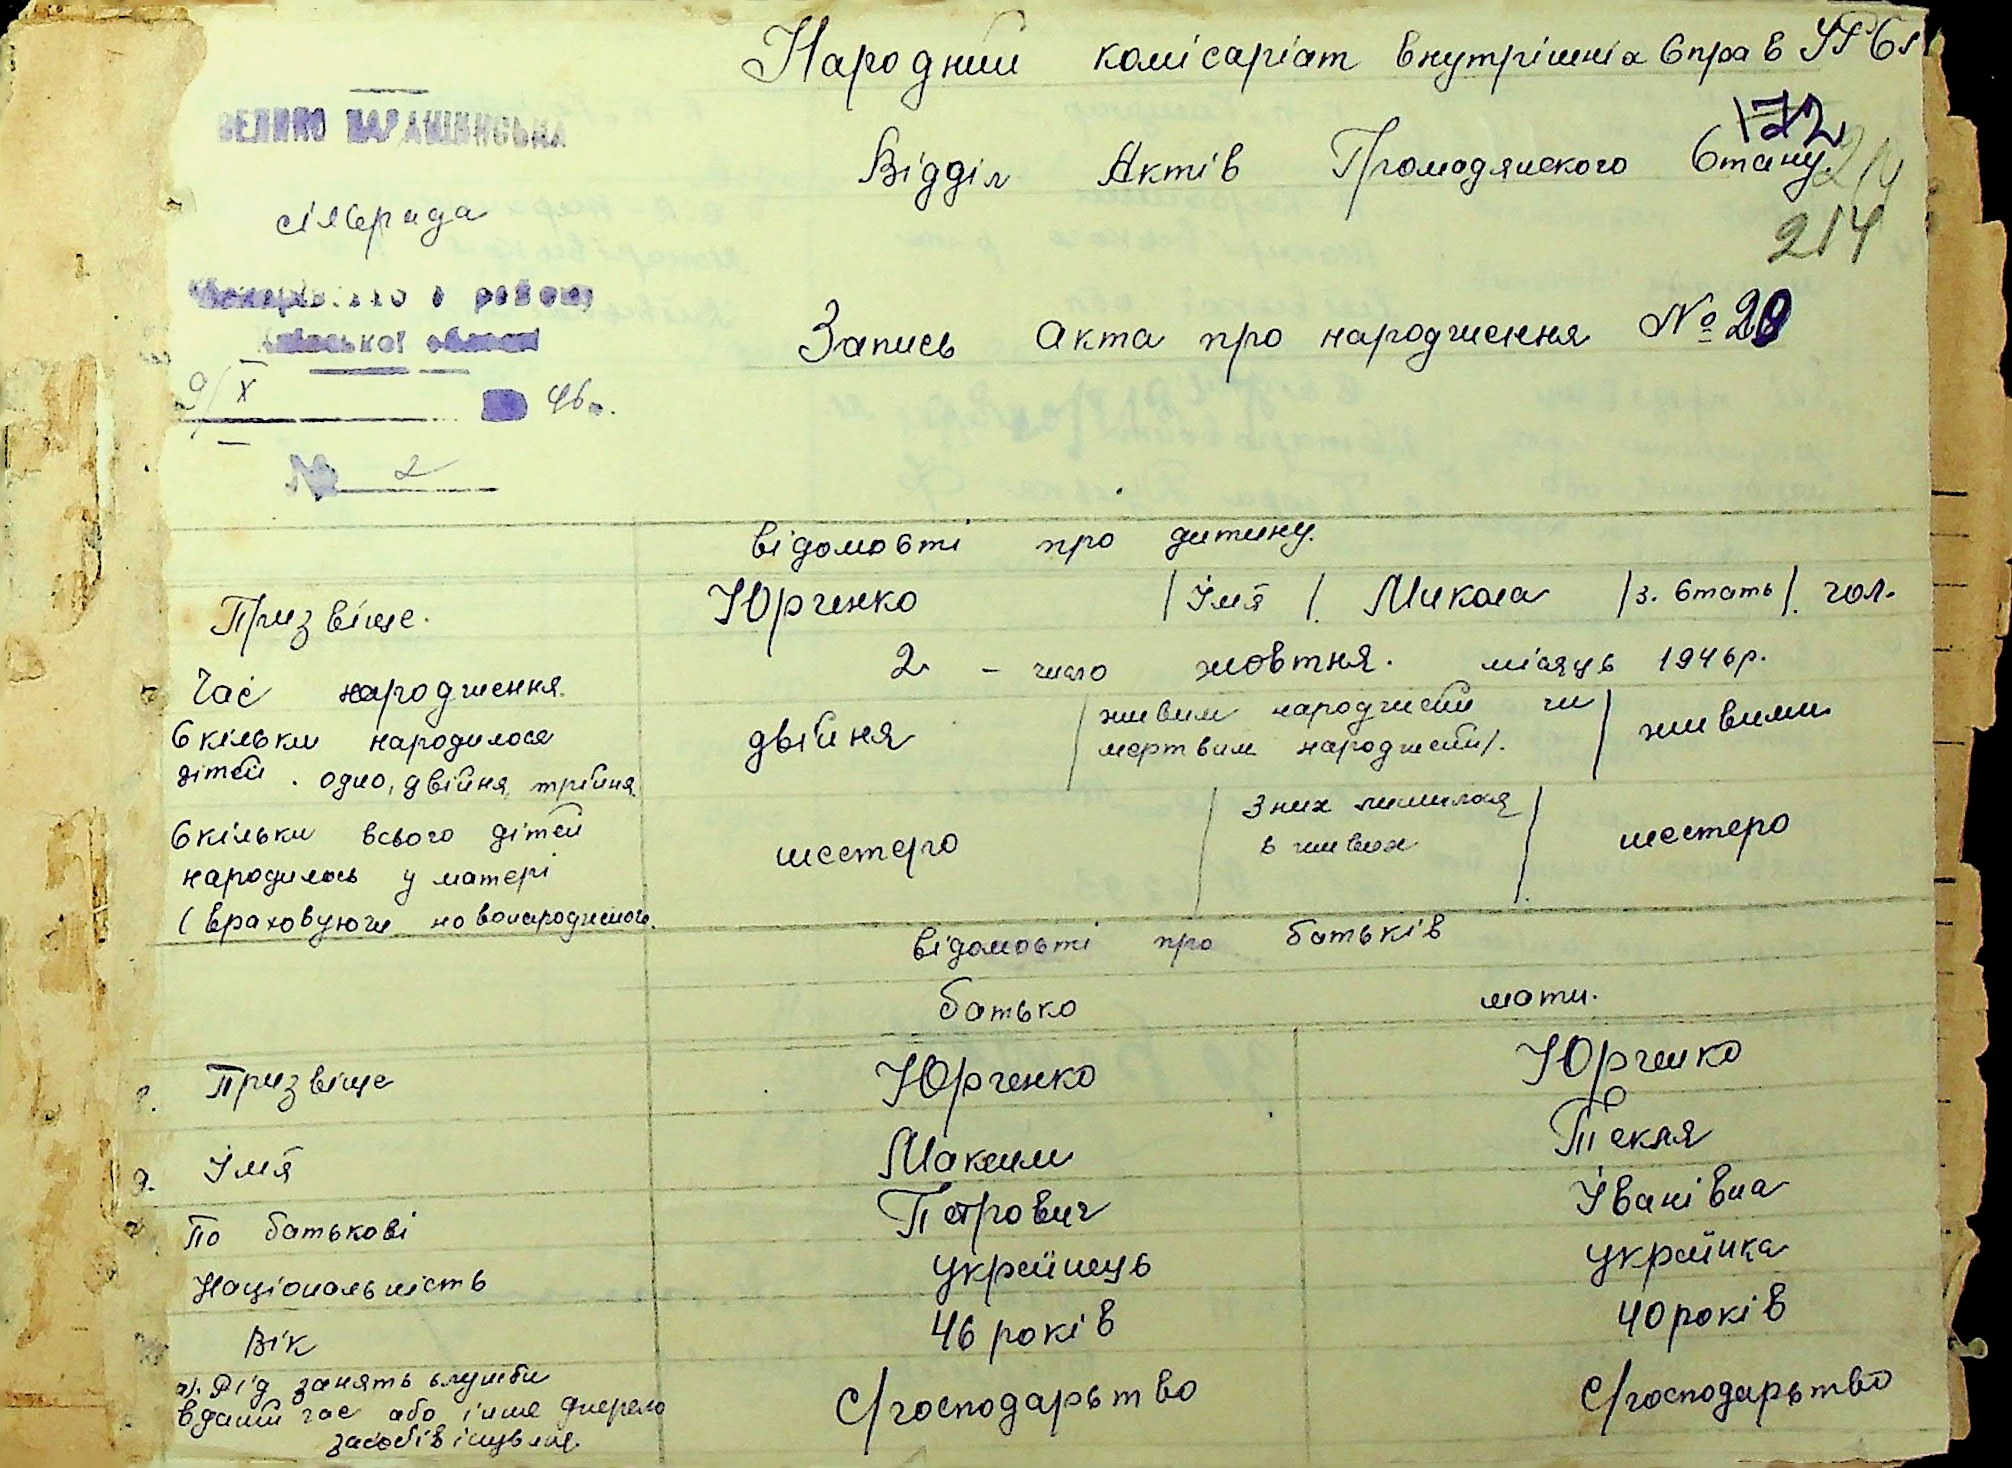 Народний комісаріат внутрішніх справ УРСР
172
ВЕЛИКО КАРАШИНСЬКА
Відділ Актів Громадянського Стану
214
214
сільрада
Макарівського району
Київської області
Запись Акта про народження № 20
9/X 46 р.
№ 2
відомості про дитину.
Призвіще. Юрченко / Імя / Микола / 3. Стать / чол.
Час народження. 2 - число жовтня. місяць 1946 р.
Скільки народилося дітей. одно, двійня, трійня. двійня / живим народжений чи мертвим народжений /. живими
Скільки всього дітей народилось у матері (враховуючи новонародженого. шестеро / З них лишилося в живих / шестеро
відомості про батьків
батько мати.
8. Призвіще Юрченко Юрченко
9. Імя Максим Текля
По батькові Петрович Іванівна
Національність українець українка
Вік 46 років 40 років
а). Рід занять служби в даний час або інше джерело засобів існування. с/господарьство с/господарьство